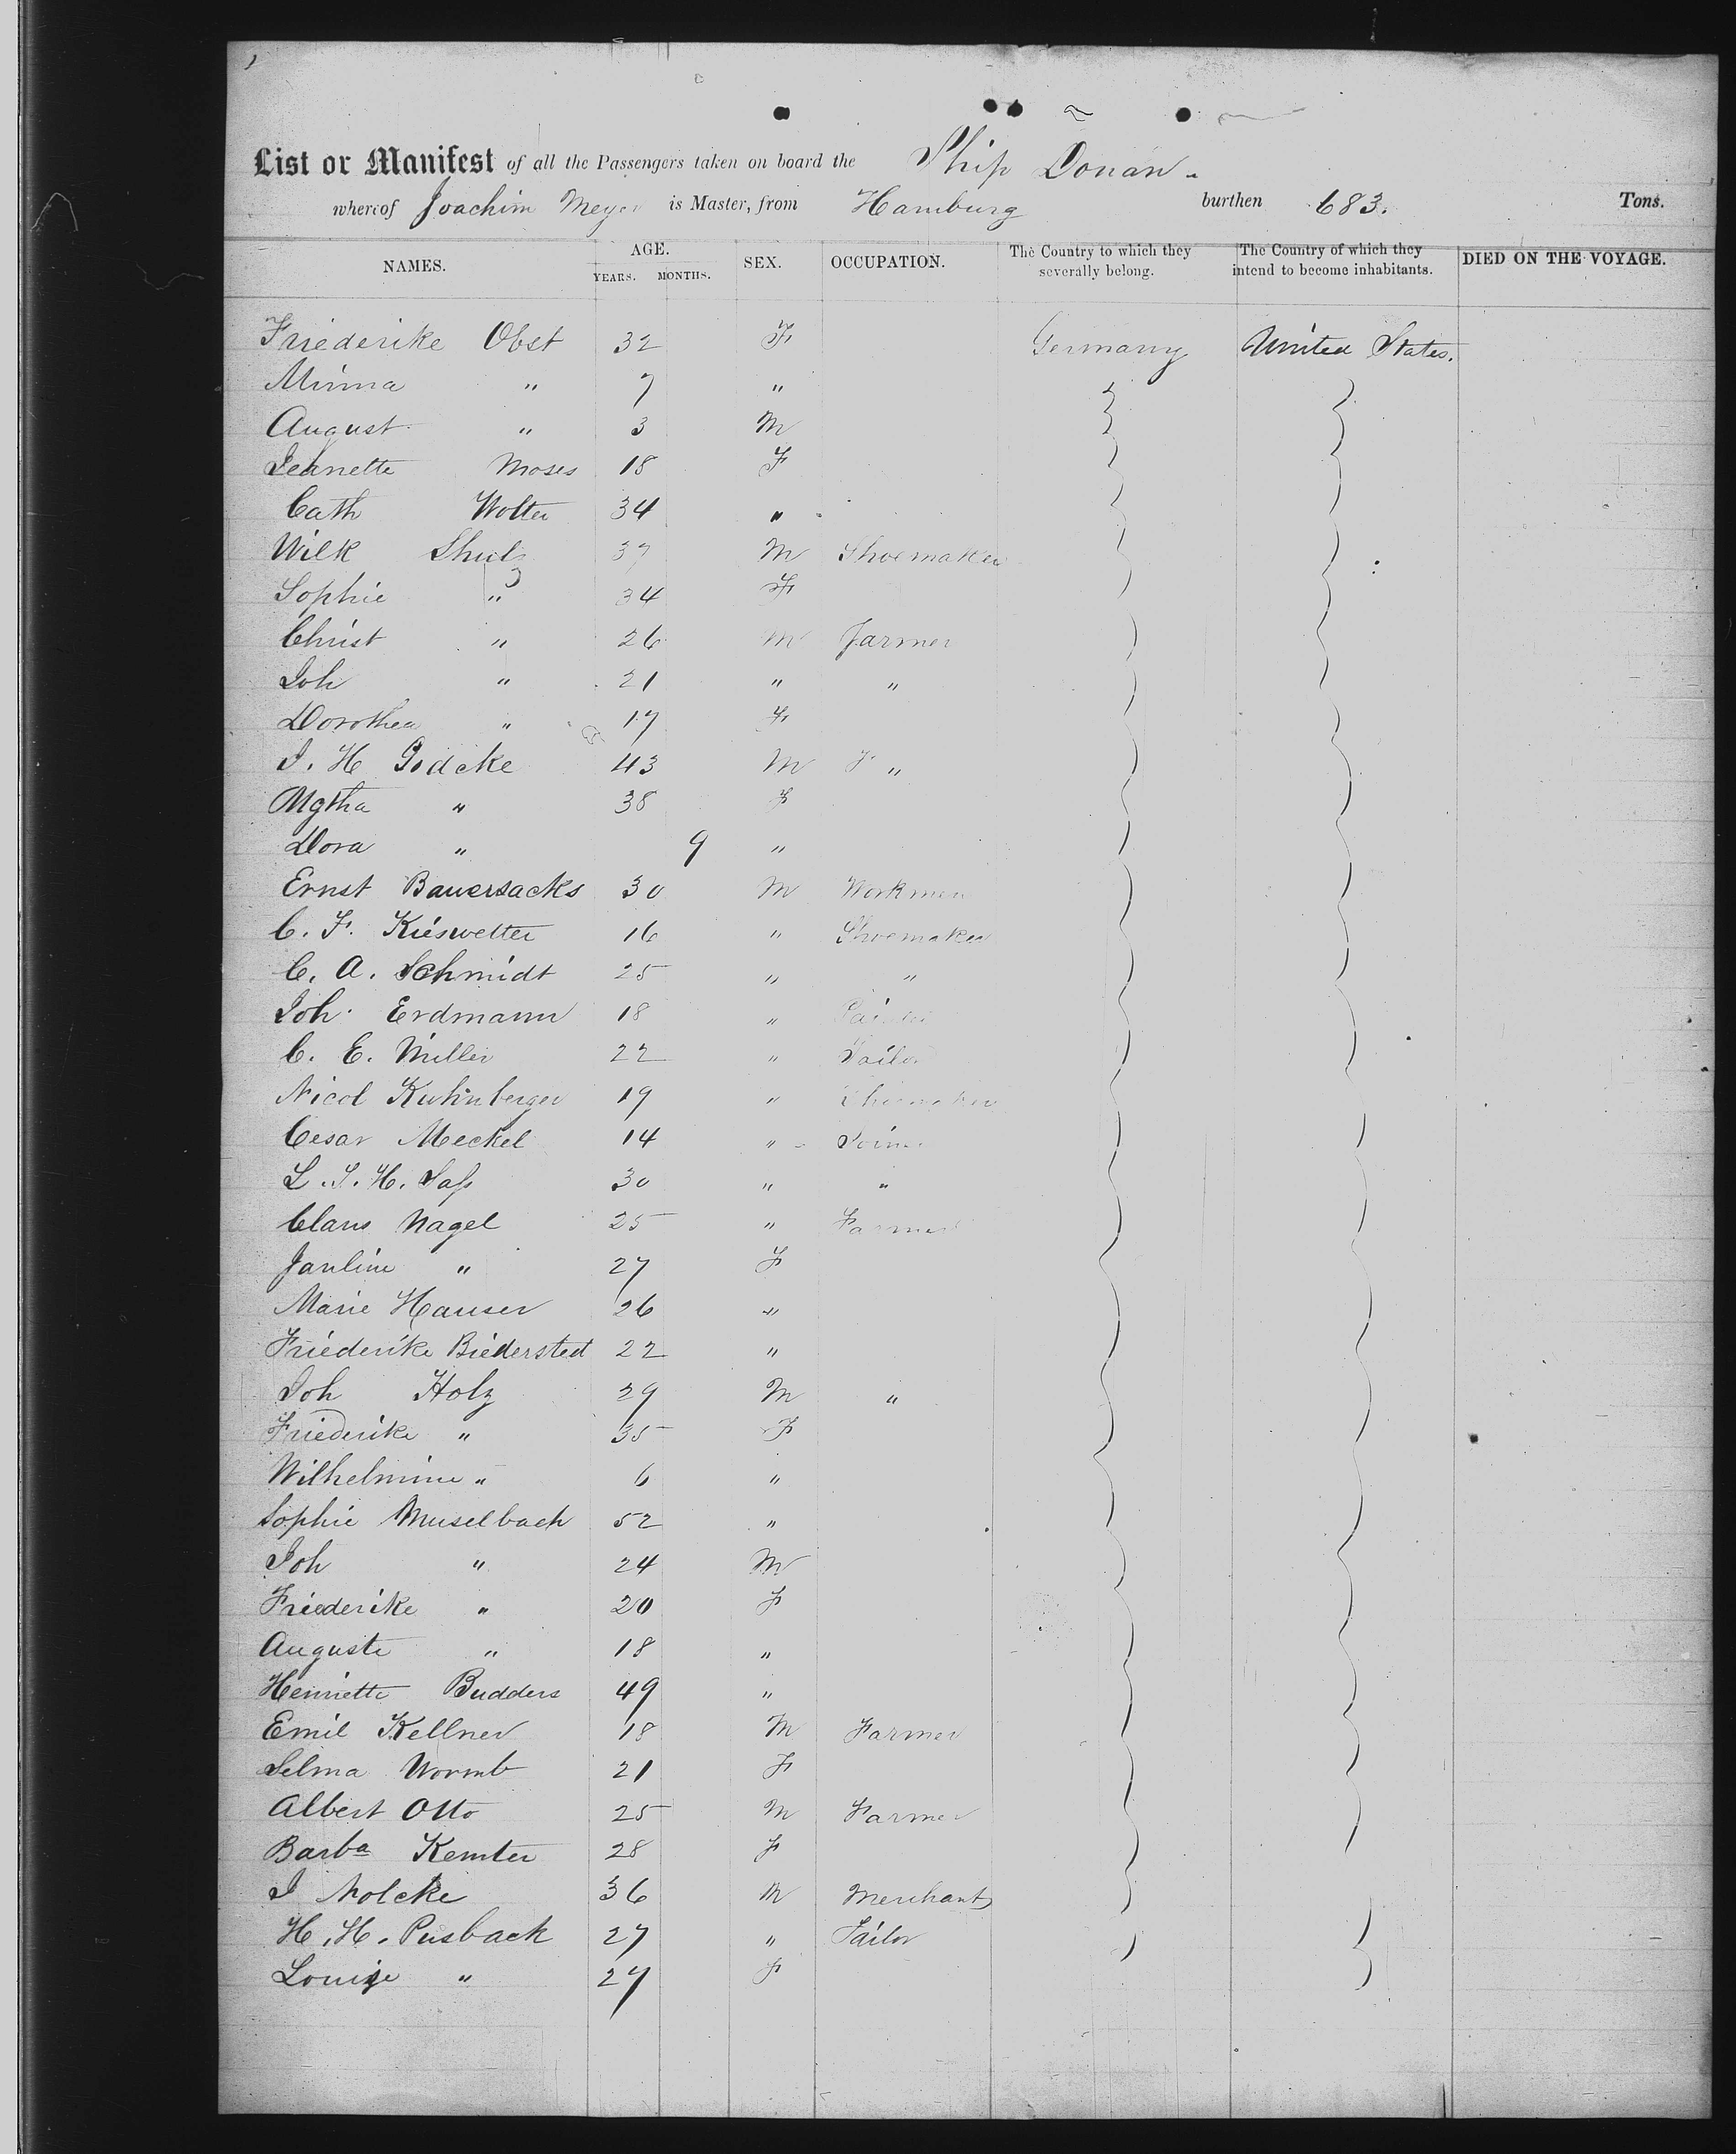 List or Manifest of all the Passengers taken on board the Ship Donan.
whereof Joachim Meyer is Master, from Hamburg burthen 683. Tons.
NAMES. AGE. YEARS. MONTHS. SEX. OCCUPATION. The Country to which they severally belong. The Country of which they intend to become inhabitants. DIED ON THE VOYAGE.
Friederike Obst 32 F Germany United States.
Minna " 7 "
August " 3 M
Jeanette Moses 18 F
Cath Wolter 34 "
Wilk Shulz 37 M Shoemaker
Sophie " 34 F
Christ " 26 M Farmer
Joh " 21 " "
Dorothea " 17 F
J. H Godcke 43 M F "
Mgtha " 38 F
Dora " 9 "
Ernst Bauersacks 30 M Workmen
C. F. Kieswetter 16 " Shoemaker
C. A. Schmidt 25 " "
Joh. Erdmann 18 "
C. E. Müller 22 " Tailor
Nicol Kuhnberger 19 " Shoemaker
Cesar Meckel 14 " Joiner
L. J. H. Saß 30 " "
Claus Nagel 25 " Farmer
Pauline " 27 F
Marie Hauser 26 "
Friederike Biedersted 22 "
Joh Holz 29 M "
Friederike " 35 F
Wilhelmine " 6 "
Sophie Muselbach 52 "
Joh " 24 M
Friederike " 20 F
Auguste " 18 "
Henriette Budders 49 "
Emil Kellner 18 M Farmer
Selma Wormb 21 F
Albert Otto 25 M Farmer
Barba Kemter 28 F
J Nolcke 36 M Merchant
H. H. Pusback 27 " Tailor
Louise " 27 F